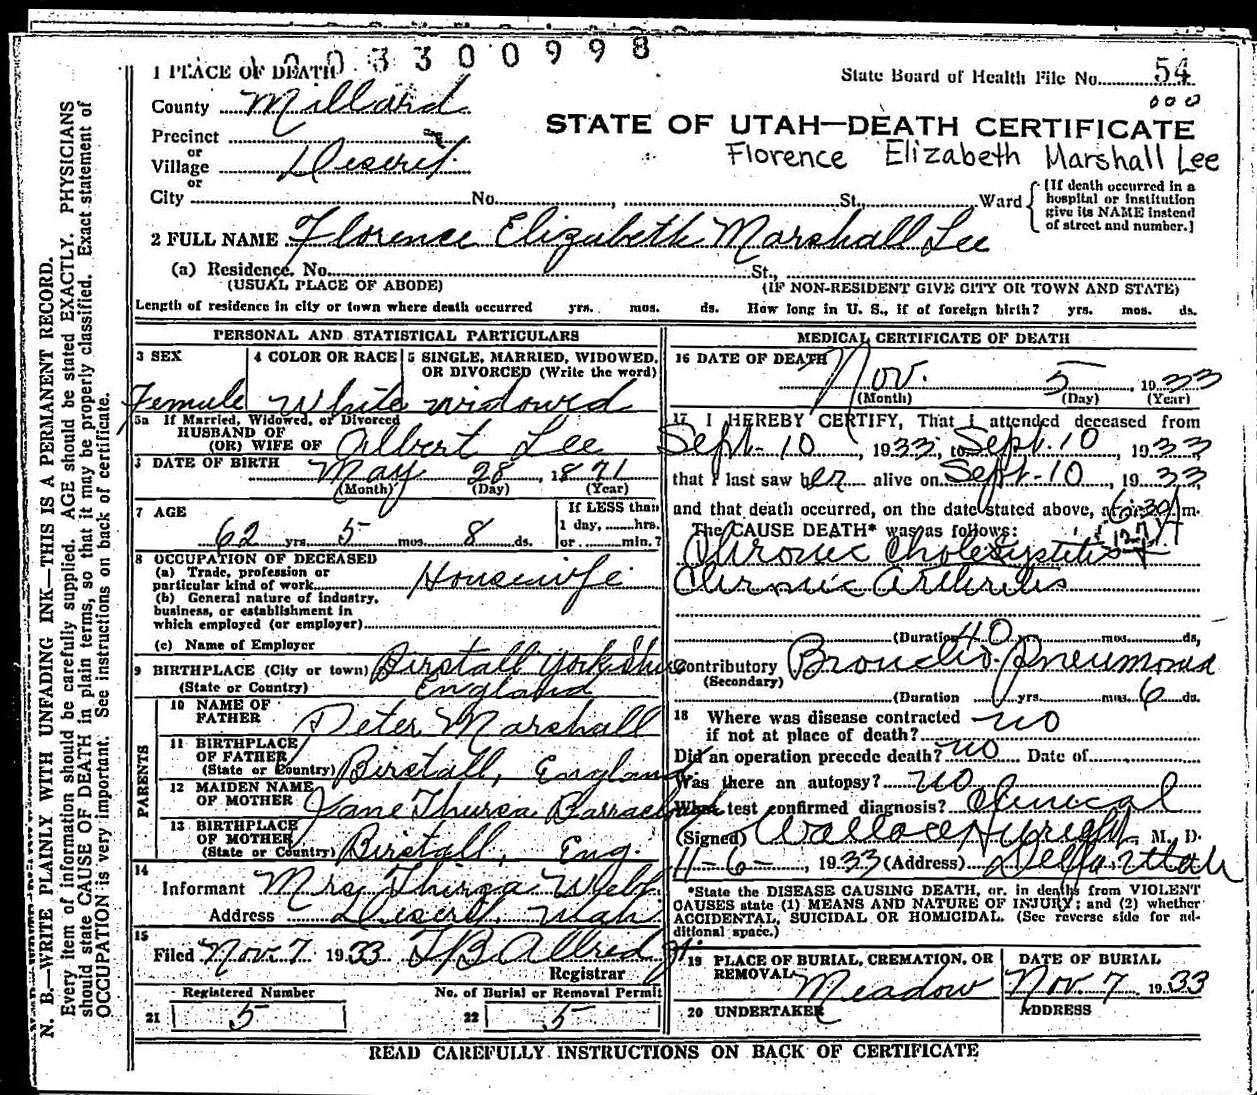 1 0 0 3 3 0 0 9 9 8
1 PLACE OF DEATH
State Board of Health File No. 54
County Millard
000
STATE OF UTAH—DEATH CERTIFICATE
Precinct
or
Florence Elizabeth Marshall Lee
Village Deseret
or
City No. , St., Ward
[If death occurred in a
hospital or institution
give its NAME instead
of street and number.]
2 FULL NAME Florence Elizabeth Marshall Lee
(a) Residence. No. St.,
(USUAL PLACE OF ABODE) (IF NON-RESIDENT GIVE CITY OR TOWN AND STATE)
Length of residence in city or town where death occurred yrs. mos. ds. How long in U. S., if of foreign birth? yrs. mos. ds.
PERSONAL AND STATISTICAL PARTICULARS
3 SEX 4 COLOR OR RACE 5 SINGLE, MARRIED, WIDOWED,
OR DIVORCED (Write the word)
Female White widowed
5a If Married, Widowed, or Divorced
HUSBAND OF
(OR) WIFE OF Albert Lee
DATE OF BIRTH May 28, 1871
(Month) (Day) (Year)
7 AGE If LESS than
1 day, hrs.
62 yrs. 5 mos. 8 ds. or min.?
8 OCCUPATION OF DECEASED
(a) Trade, profession or
particular kind of work Housewife
(b) General nature of industry,
business, or establishment in
which employed (or employer)
(c) Name of Employer
9 BIRTHPLACE (City or town) Birstall Yorkshire
(State or Country) England
PARENTS
10 NAME OF
FATHER Peter Marshall
11 BIRTHPLACE
OF FATHER
(State or Country) Birstall, England
12 MAIDEN NAME
OF MOTHER Jane Thursa
13 BIRTHPLACE
OF MOTHER
(State or Country) Birstall, Eng.
14
Informant Mrs Thirza Webb
Address Deseret, Utah
15
Filed Nov. 7 1933 T B Allred
Registrar
Registered Number No. of Burial or Removal Permit
21 5 22 5
MEDICAL CERTIFICATE OF DEATH
16 DATE OF DEATH
Nov. 5, 1933
(Month) (Day) (Year)
17 I HEREBY CERTIFY, That I attended deceased from
Sept-10, 1933, to Sept. 10, 1933
that I last saw her alive on Sept-10, 1933
and that death occurred, on the date stated above, at 6:30 A m.
The CAUSE DEATH* was as follows:
127
Chronic Cholesystitis +
Chronic Arthritis
(Duration 40 yrs. mos. ds,
Contributory Broncho-Pneumonia
(Secondary)
(Duration yrs. mos. 6 ds.
18 Where was disease contracted
if not at place of death? no
Did an operation precede death? no Date of
Was there an autopsy? no
What test confirmed diagnosis? Clinical
(Signed) Wallace, M. D.
11-6-, 1933 (Address) Delta Utah
*State the DISEASE CAUSING DEATH, or, in deaths from VIOLENT
CAUSES state (1) MEANS AND NATURE OF INJURY; and (2) whether
ACCIDENTAL, SUICIDAL OR HOMICIDAL. (See reverse side for ad-
ditional space.)
19 PLACE OF BURIAL, CREMATION, OR
REMOVAL Meadow
DATE OF BURIAL
Nov. 7 1933
20 UNDERTAKER ADDRESS
READ CAREFULLY INSTRUCTIONS ON BACK OF CERTIFICATE
N. B.—WRITE PLAINLY WITH UNFADING INK—THIS IS A PERMANENT RECORD.
Every item of information should be carefully supplied. AGE should be stated EXACTLY. PHYSICIANS
should state CAUSE OF DEATH in plain terms, so that it may be properly classified. Exact statement of
OCCUPATION is very important. See instructions on back of certificate.